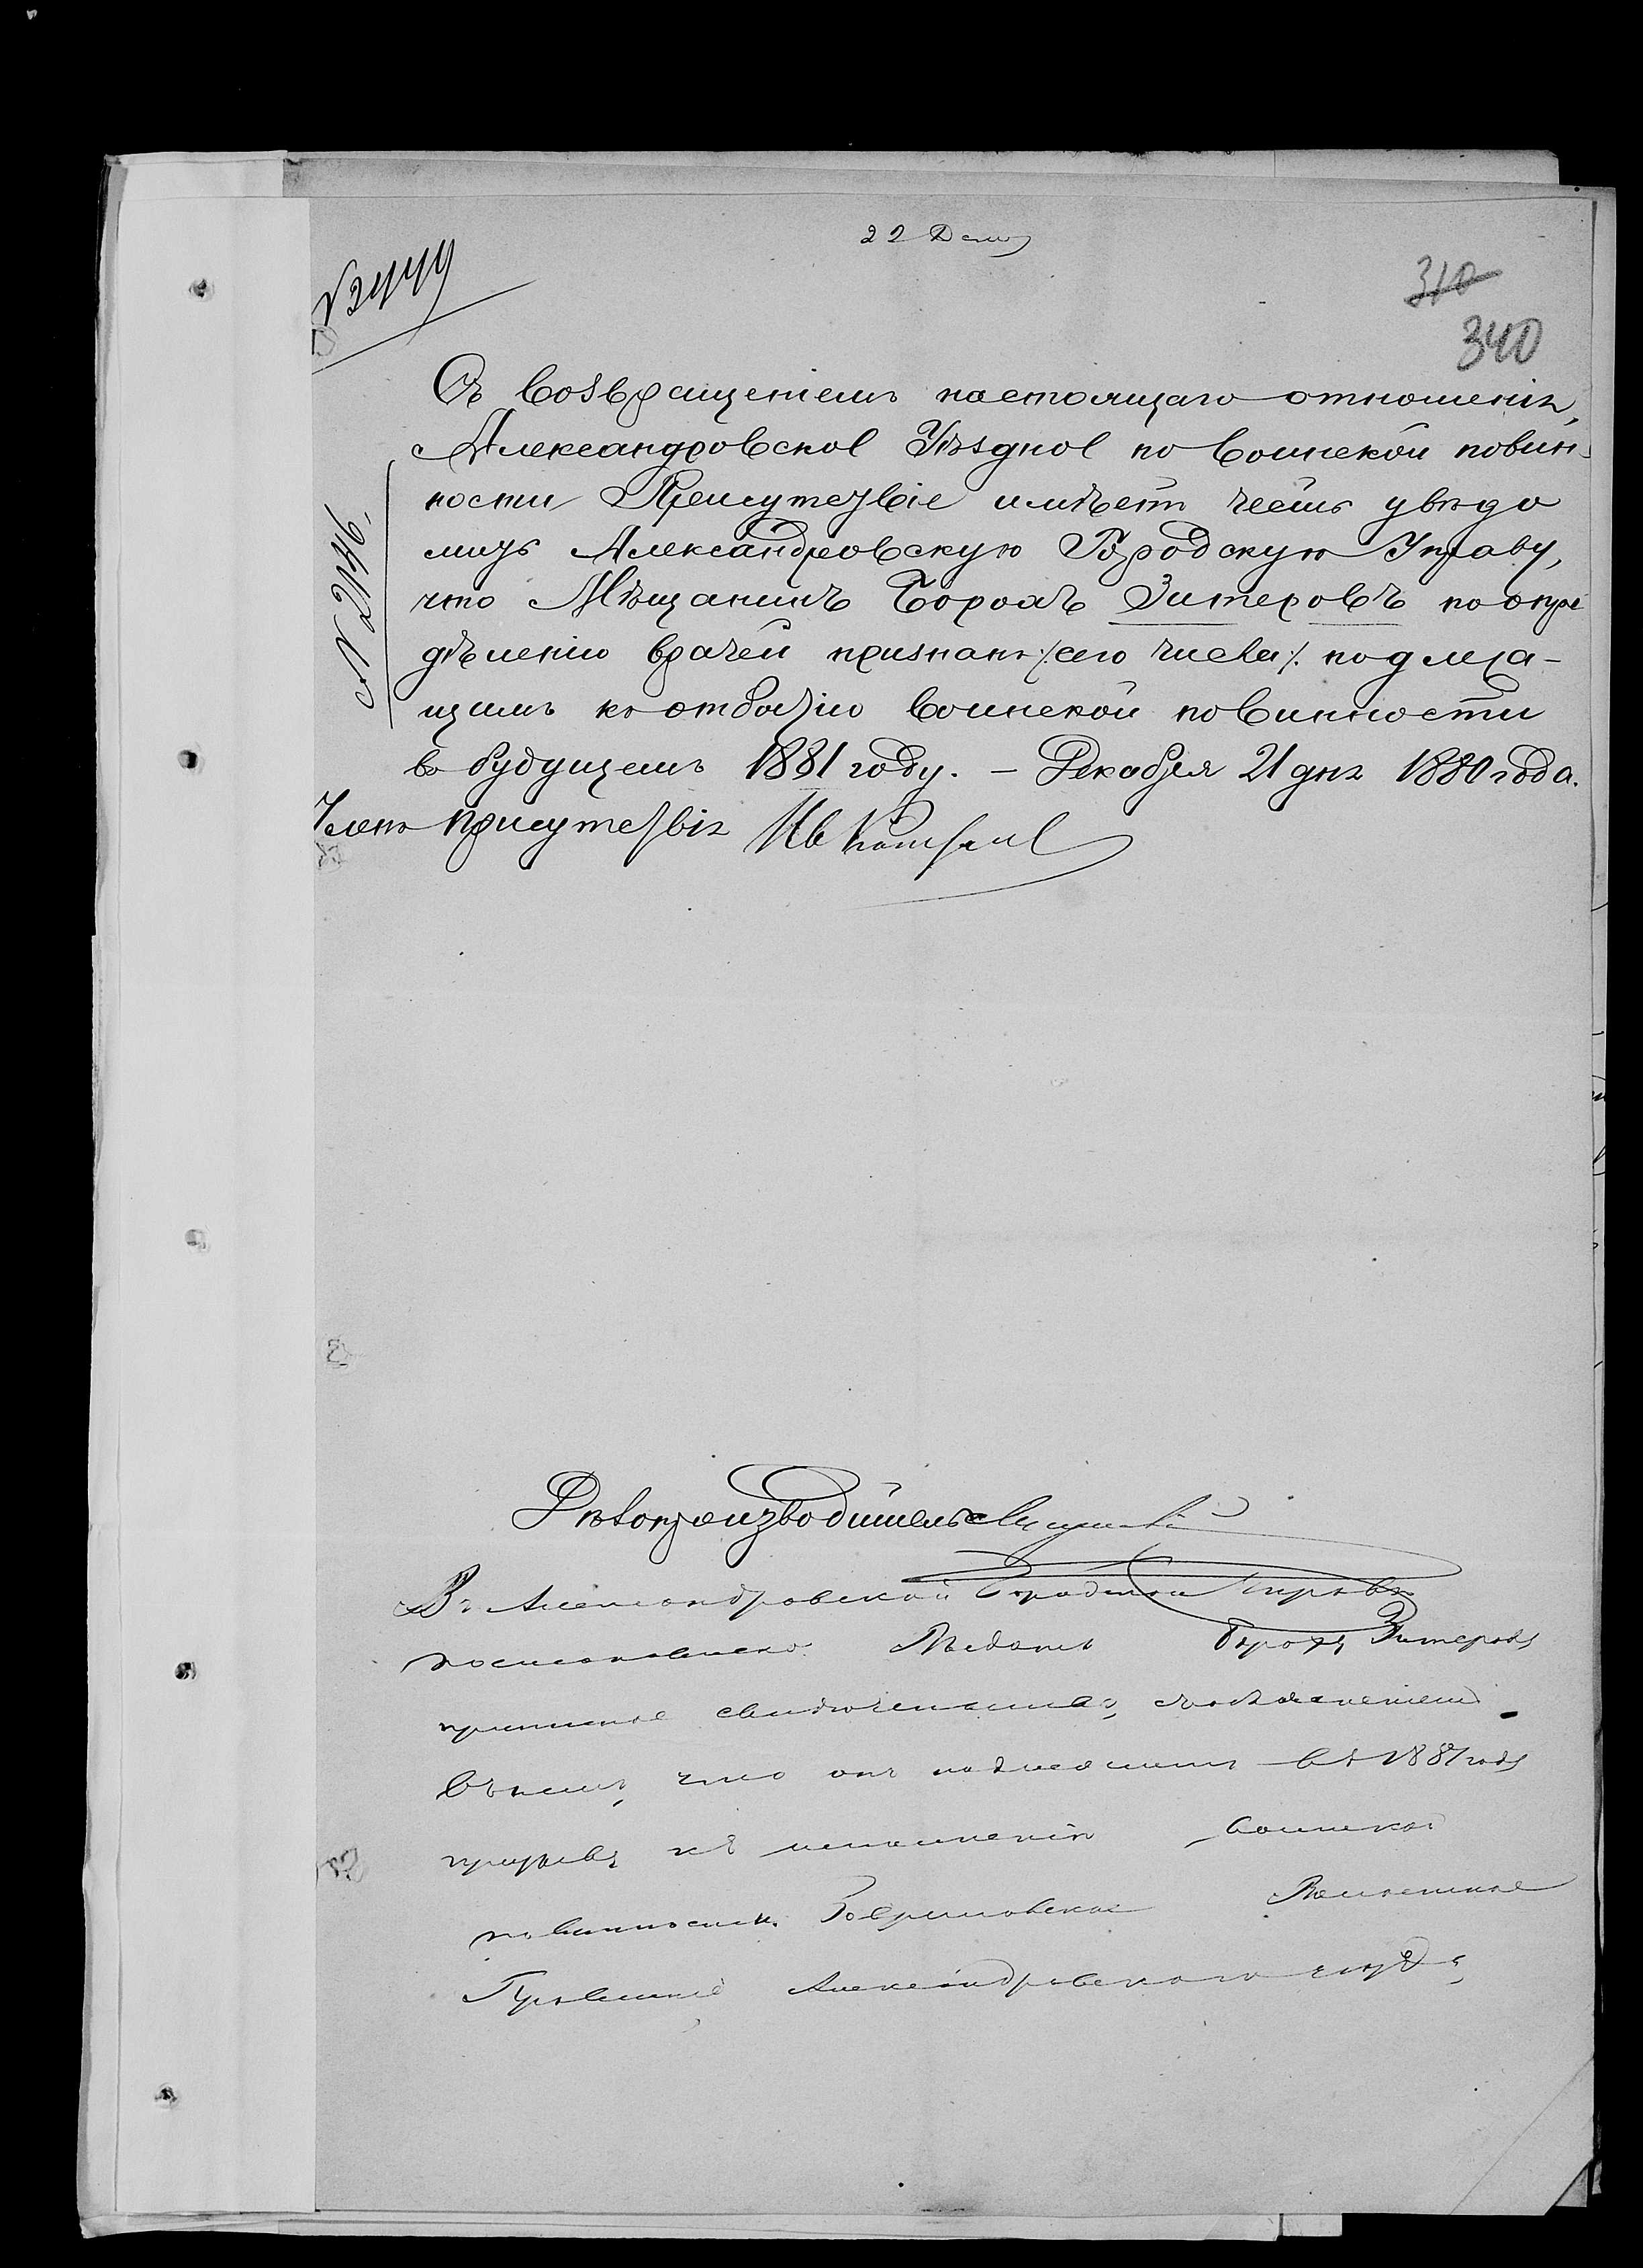 22 Дек
№ 2449
310
340
Съ возвращеніемъ настоящаго отношенія,
Александровское Уѣздное по воинской повин-
ности Присутствіе имѣетъ честь увѣдо
мить Александровскую Городскую Управу,
что Мѣщанинъ Борохъ Зитеровъ по опре
дѣленію врачей признанъ /:сего числа:/ подлежа-
щимъ къ отбытію воинской повинности
въ будущемъ 1881 году. – Декабря 21 дня 1880 года.
№ 2146.
Членъ присутствія Ив
Дѣлопроизводитель
Въ Александровской Городской Управѣ
постановлено: Выдать Бороху Зитерову
что онъ подлежитъ въ 1881 году
призыву къ исполненію воинской
повинности. Волостное
Правленіе Александровскаго уѣзда